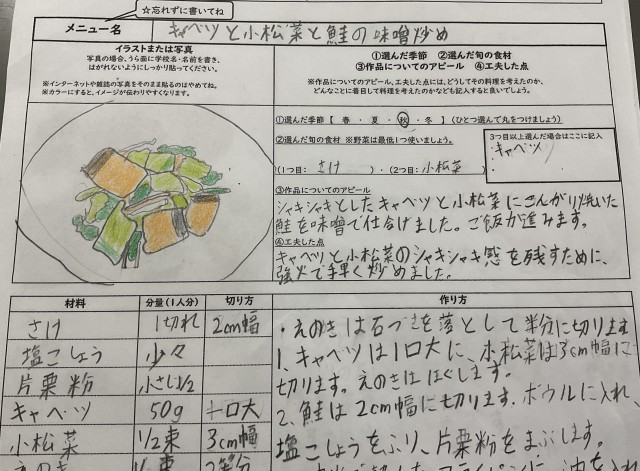 ☆忘れずに書いてね
メニュー名
キャベツと小松菜と鮭の味噌炒め
イラストまたは写真
写真の場合、うら面に学校名・名前を書き、
はがれないようにしっかり貼ってください。
※インターネットや雑誌の写真をそのまま貼るのはやめてね。
※カラーにすると、イメージが伝わりやすくなります。
①選んだ季節 ②選んだ旬の食材
③作品についてのアピール ④工夫した点
※作品についてのアピール、工夫した点には、どうしてその料理を考えたのか、
どんなことに着目して料理を考えたのかなども記入すると良いでしょう。
①選んだ季節【 春 ・ 夏 ・ 秋 ・ 冬 】(ひとつ選んで丸をつけましょう)
②選んだ旬の食材 ※野菜は最低1つ使いましょう。
(1つ目: さけ )・(2つ目: 小松菜 )
3つ目以上選んだ場合はここに記入
・キャベツ
③作品についてのアピール
シャキシャキとしたキャベツと小松菜にこんがり焼いた
鮭を味噌で仕上げました。ご飯が進みます。
④工夫した点
キャベツと小松菜のシャキシャキ感を残すために、
強火で手早く炒めました。
材料 分量(1人分) 切り方
さけ 1切れ 2cm幅
塩こしょう 少々
片栗粉 小さじ1/2
キャベツ 50g 一口大
小松菜 1/2束 3cm幅
作り方
・えのきは石づきを落として半分に切ります
1、キャベツは1口大に、小松菜は3cm幅に
切ります。えのきはほぐします。
2、鮭は2cm幅に切ります。ボウルに入れ、
塩こしょうをふり、片栗粉をまぶします。